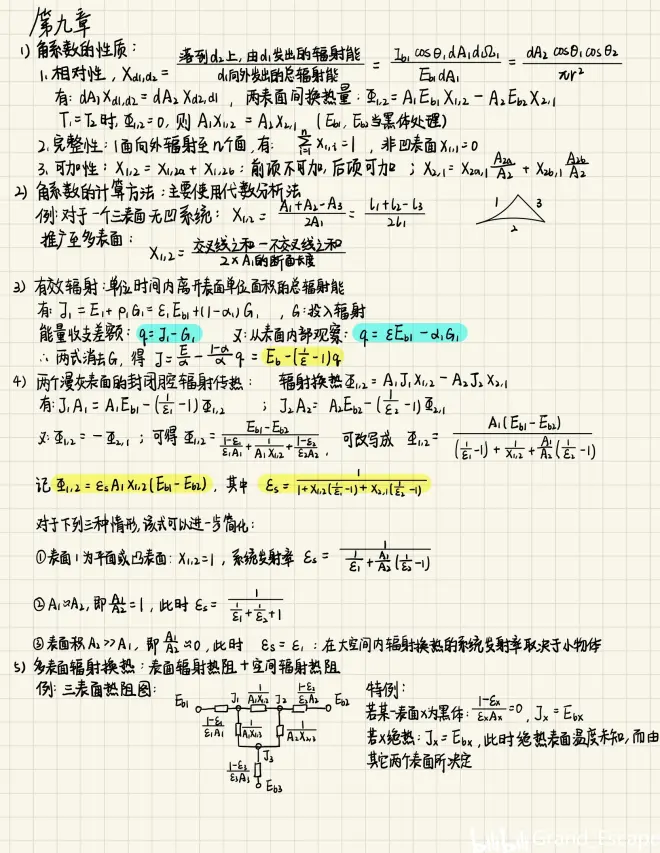 第九章
1) 角系数的性质：
1. 相对性，X_{d1,d2} = 落到d₂上,由d₁发出的辐射能 / d₁向外发出的总辐射能 = I_{b1} cosθ₁ dA₁ dΩ₁ / E_{b1} dA₁ = dA₂ cosθ₁ cosθ₂ / πr²
有: dA₁ X_{d1,d2} = dA₂ X_{d2,d1}，两表面间换热量: Φ_{1,2} = A₁E_{b1}X_{1,2} − A₂E_{b2}X_{2,1}
T₁=T₂时, Φ_{1,2}=0, 则 A₁X_{1,2} = A₂X_{2,1} (E_{b1}, E_{b2}当黑体处理)
2. 完整性: 1面向外辐射至n个面, 有: Σ_{i=1}^{n} X_{1,i} = 1，非凹表面X_{1,1}=0
3. 可加性: X_{1,2} = X_{1,2a} + X_{1,2b}: 前项不可加, 后项可加；X_{2,1} = X_{2a,1} A_{2a}/A₂ + X_{2b,1} A_{2b}/A₂
2) 角系数的计算方法: 主要使用代数分析法
例: 对于一个三表面无凹系统: X_{1,2} = (A₁+A₂−A₃)/2A₁ = (l₁+l₂−l₃)/2l₁
1 3
2
推广至多表面:
X_{1,2} = 交叉线之和−不交叉线之和 / 2×A₁的断面长度
3) 有效辐射: 单位时间内离开表面单位面积的总辐射能
有: J₁ = E₁+ρ₁G₁ = ε₁E_{b1}+(1−α₁)G₁，G: 投入辐射
能量收支差额: q=J₁−G₁ 又: 从表面内部观察: q = εE_{b1} − α₁G₁
∴ 两式消去G, 得 J = E/α − (1−α)/α q = E_b−(1/ε−1)q
4) 两个漫灰表面的封闭腔辐射传热: 辐射换热Φ_{1,2} = A₁J₁X_{1,2} − A₂J₂X_{2,1}
有: J₁A₁ = A₁E_{b1} − (1/ε₁ −1)Φ_{1,2} ； J₂A₂ = A₂E_{b2} − (1/ε₂ −1)Φ_{2,1}
又: Φ_{1,2} = −Φ_{2,1}；可得 Φ_{1,2} = (E_{b1}−E_{b2}) / ((1−ε₁)/ε₁A₁ + 1/A₁X_{1,2} + (1−ε₂)/ε₂A₂)，可改写成 Φ_{1,2} = A₁(E_{b1}−E_{b2}) / ((1/ε₁−1) + 1/X_{1,2} + A₁/A₂(1/ε₂−1))
记 Φ_{1,2} = ε_s A₁X_{1,2}(E_{b1}−E_{b2})，其中 ε_s = 1 / (1+X_{1,2}(1/ε₁−1)+X_{2,1}(1/ε₂−1))
对于下列三种情形, 该式可以进一步简化:
①表面1为平面或凸表面: X_{1,2}=1，系统发射率 ε_s = 1 / (1/ε₁ + A₁/A₂(1/ε₂−1))
②A₁≈A₂, 即A₁/A₂=1，此时 ε_s = 1 / (1/ε₁+1/ε₂+1)
③表面积A₂>>A₁，即A₁/A₂≈0，此时 ε_s = ε₁: 在大空间内辐射换热的系统发射率取决于小物体
5) 多表面辐射换热: 表面辐射热阻+空间辐射热阻
例: 三表面热阻图:
E_{b1} J₁ 1/A₁X_{1,2} J₂ (1−ε₂)/ε₂A₂ E_{b2}
(1−ε₁)/ε₁A₁ 1/A₁X_{1,3} 1/A₂X_{2,3}
J₃
(1−ε₃)/ε₃A₃
E_{b3}
特例:
若某一表面x为黑体: (1−ε_x)/ε_xA_x=0，J_x = E_{bx}
若x绝热: J_x = E_{bx}, 此时绝热表面温度未知, 而由
其它两个表面所决定
bilibili Grand_Escape